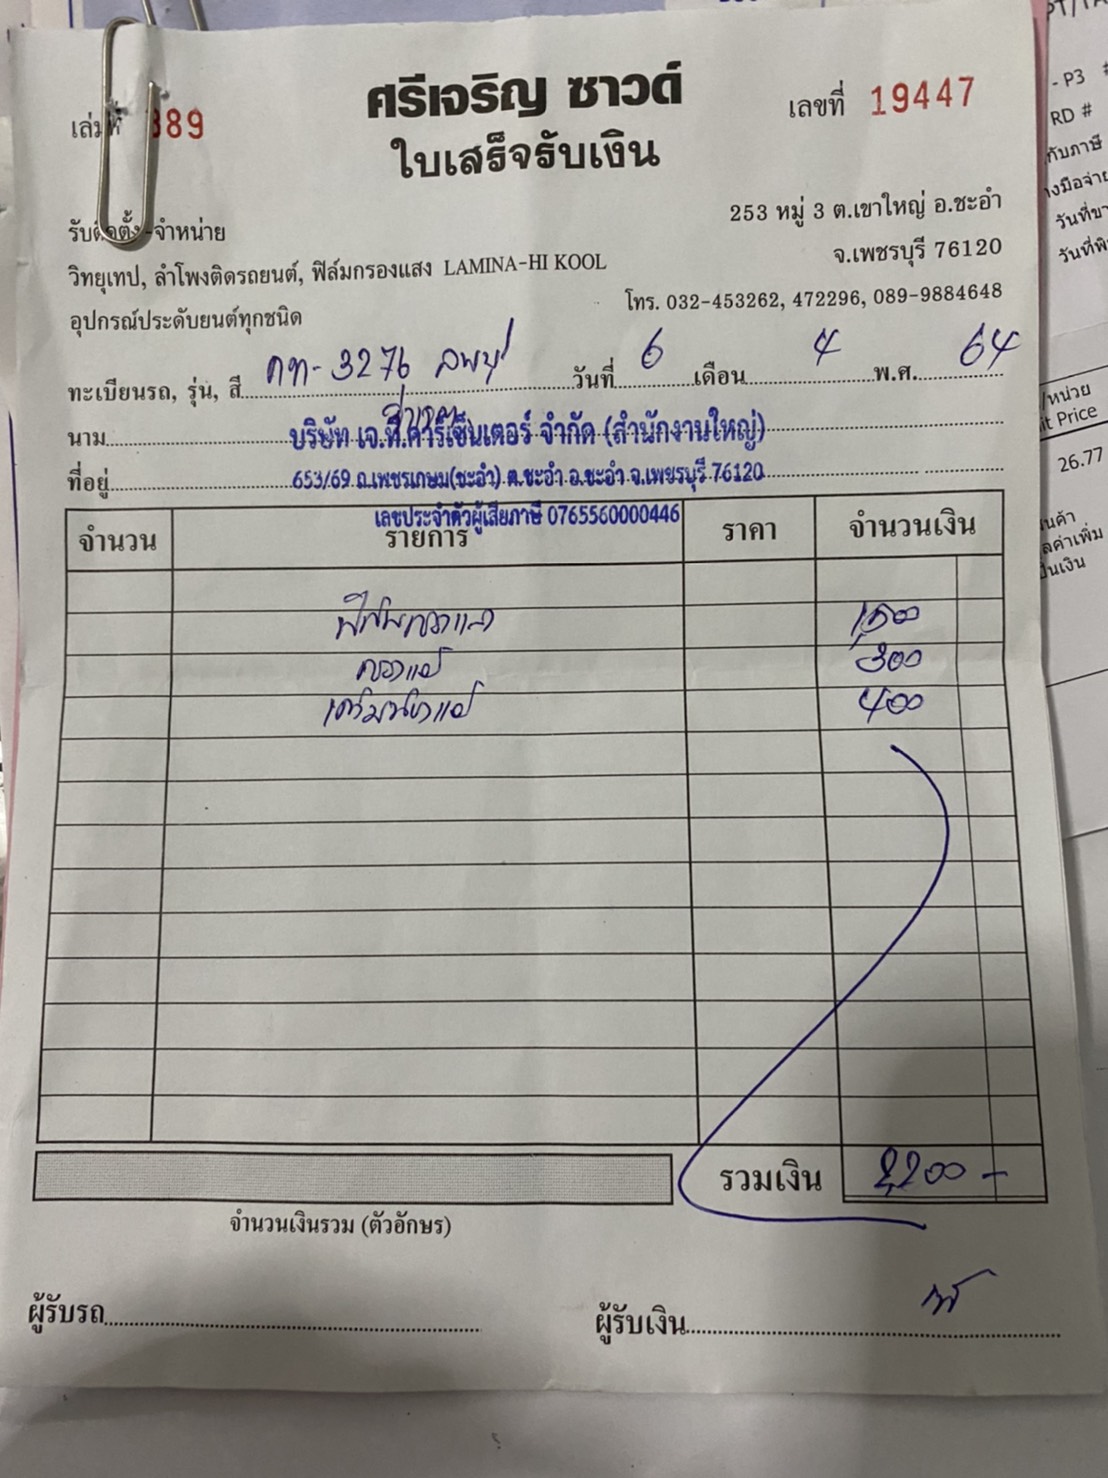 ศรีเจริญ ซาวด์
ใบเสร็จรับเงิน
เล่มที่ 389
เลขที่ 19447
รับติดตั้ง-จำหน่าย
วิทยุเทป, ลำโพงติดรถยนต์, ฟิล์มกรองแสง LAMINA-HI KOOL
อุปกรณ์ประดับยนต์ทุกชนิด
253 หมู่ 3 ต.เขาใหญ่ อ.ชะอำ
จ.เพชรบุรี 76120
โทร. 032-453262, 472296, 089-9884648
ทะเบียนรถ, รุ่น, สี 3276 วันที่ 6 เดือน 4 พ.ศ. 64
นาม บริษัท เจ.ที.คาร์เซ็นเตอร์ จำกัด (สำนักงานใหญ่)
ที่อยู่ 653/69 ถ.เพชรเกษม(ชะอำ) ต.ชะอำ อ.ชะอำ จ.เพชรบุรี 76120
เลขประจำตัวผู้เสียภาษี 0765560000446
จำนวน รายการ ราคา จำนวนเงิน
ฟิล์มกรองแสง 1,500
300
400
รวมเงิน 2,200 -
จำนวนเงินรวม (ตัวอักษร)
ผู้รับรถ
ผู้รับเงิน
- P3
RD #
วันที่
/หน่วย
it Price
26.77
เป็นเงิน